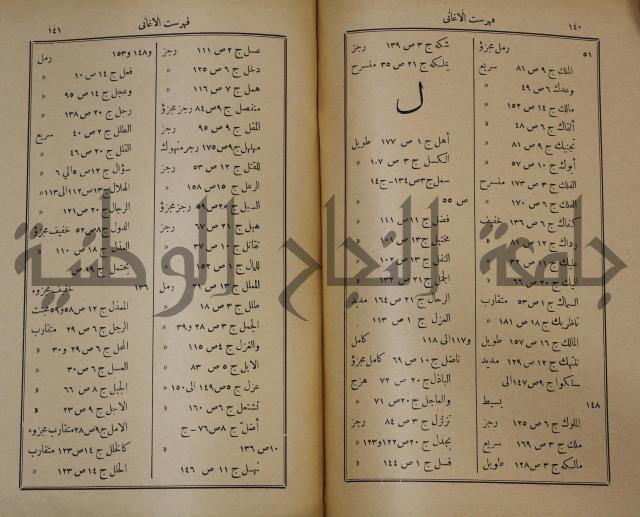 ١٤٠
فهرست الاغانى
رمل مجزؤ ٥١
الملك ج ٩ ص ٨١ سريع
وعدك ج ٦ ص ٤٩ «
مالك ج ١٤ ص ١٥٢ «
ألقاك ج ٦ ص ٤٨ «
تجنيك ج ٩ ص ٨١ «
أبوك ج ١٠ ص ٥٧ «
الفلك ج ٣ ص ١٧٣ منسرح
الفلك ج ٦ ص ١٧٠ «
كفاك ج ٦ ص ١٣٦ خفيف
رداك ج ١٢ ص ٨١ «
عليك ج ١١ ص ٣٢
اليك ج ٢٠ ص ٦٦ «
السماك ج ١ ص ٥٣ متقارب
ناظريك ج ١٨ ص ١٨١ «
المالك ج ١٦ ص ١٥٧ طويل
ج ١٢ ص ١٢٩ مديد
سلكوا ج ٩ ص ١٤٧ الى
١٤٨ بسيط
الملوك ج ٦ ص ١٢٥ رجز
ملك ج ٣ ص ١٦٩ سريع
مالكه ج ٣ ص ١٢٨ طويل
شكه ج ٣ ص ١٣٩ رجز
يملكه ج ٢١ ص ٣٥ منسرح
ل
أهل ج ١ ص ١٧٧ طويل
الكسل ج ٣ ص ١٠٧ «
سعل ج ٣ ص ١٣٤ - ج ١٤
ص ٥٥ «
فضل ج ١١ ص ١١١ «
ج ١٣ ص ١٠٩
الثفل ج ١٣ ص ١٠٢ «
الجمل ج ٢١ ص ١٣٢ «
الرحال ج ٢١ ص ١٦٤ مديد
العزل ج ١ ص ١١٣
و١١٧ الى ١١٨ كامل
ناضل ج ١٠ ص ٦٩ كامل مجزؤ
الباذل ج ٢٠ ص ٧٢ هزج
والماجل ج ٢٠ ص ٧١ «
تزلزل ج ٣ ص ٨٤ رجز
بجدل ج ٢٠ ص ١٢٢ و١٢٣ «
فسل ج ١ ص ١٤٤ «
فهرست الاغانى
١٤١
عسل ج ٢ ص ١١١ رجز
دخل ج ٦ ص ١٢٥ «
همل ج ٧ ص ١١٦ «
منفصل ج ٩ ص ٨٤ رجز مجزؤ
المقل ج ٩ ص ٩٥ رجز
مهلهل ج ٩ ص ١٧٥ رجز منهوك
للقتل ج ١٢ ص ٥٣ رجز
الرعل ج ١٥ ص ١٥٨ «
السبل ج ٢٠ ص ٥٩ رجز مجزؤ
هبل ج ٢١ ص ٦٧ رجز
تقاتل ج ١٠ ص ٣٧ «
للمال ج ١ ص ١٥٢ «
الململ ج ١٣ ص ٣١ رمل
طلل ج ٣ ص ١٨ «
الجمل ج ٣ ص ٢٨ و٣٩ «
والغزل ج ٤ ص ١١٥ «
الابل ج ٥ ص ٨٣ «
عزل ج ٥ ص ١٤٩ الى ١٥٠ «
تشتعل ج ٦ ص ١٦٠ «
أضل ج ٨ ص ٧٦ - ج
١٠ ص ١٣٦ «
نهبل ج ١١ ص ١٤٦
و١٤٨ و١٥٣ رمل
فعل ج ١٤ ص ١٠ «
وعجل ج ١٤ ص ٩٥ «
رجل ج ٢٠ ص ١٣٨ «
الطلل ج ٢ ص ٤٠ سريع
القلل ج ٢٠ ص ٤٦ «
سؤال ج ١٢ ص ٥ الى ٦ «
الهلال ج ١٣ ص ١١٢ الى ١١٣ «
الرجال ج ٢٠ ص ١٢١ «
الدول ج ٨ ص ٥٢ خفيف مجزؤ
ج ١٨ ص ١١٠
يحتمل ج ١٩ ص
١٣٦ خفيف مجزوء
المعذل ج ١٢ ص ٥٨ و٥٩ مجتث
الرجل ج ٦ ص ٢٩ متقارب
المحل ج ٦ ص ٢٩ و٣٠ «
العسل ج ٦ ص ٣٠ «
الجبل ج ٨ ص ٦٦ «
الاجل ج ٩ ص ٢٣ «
الامل ج ٩ ص ٢٨ متقارب مجزوء
كالخلل ج ١٤ ص ١٢٣ متقارب
الحلل ج ١٤ ص ١٢٣ «
جامعة النجاح الوطنية